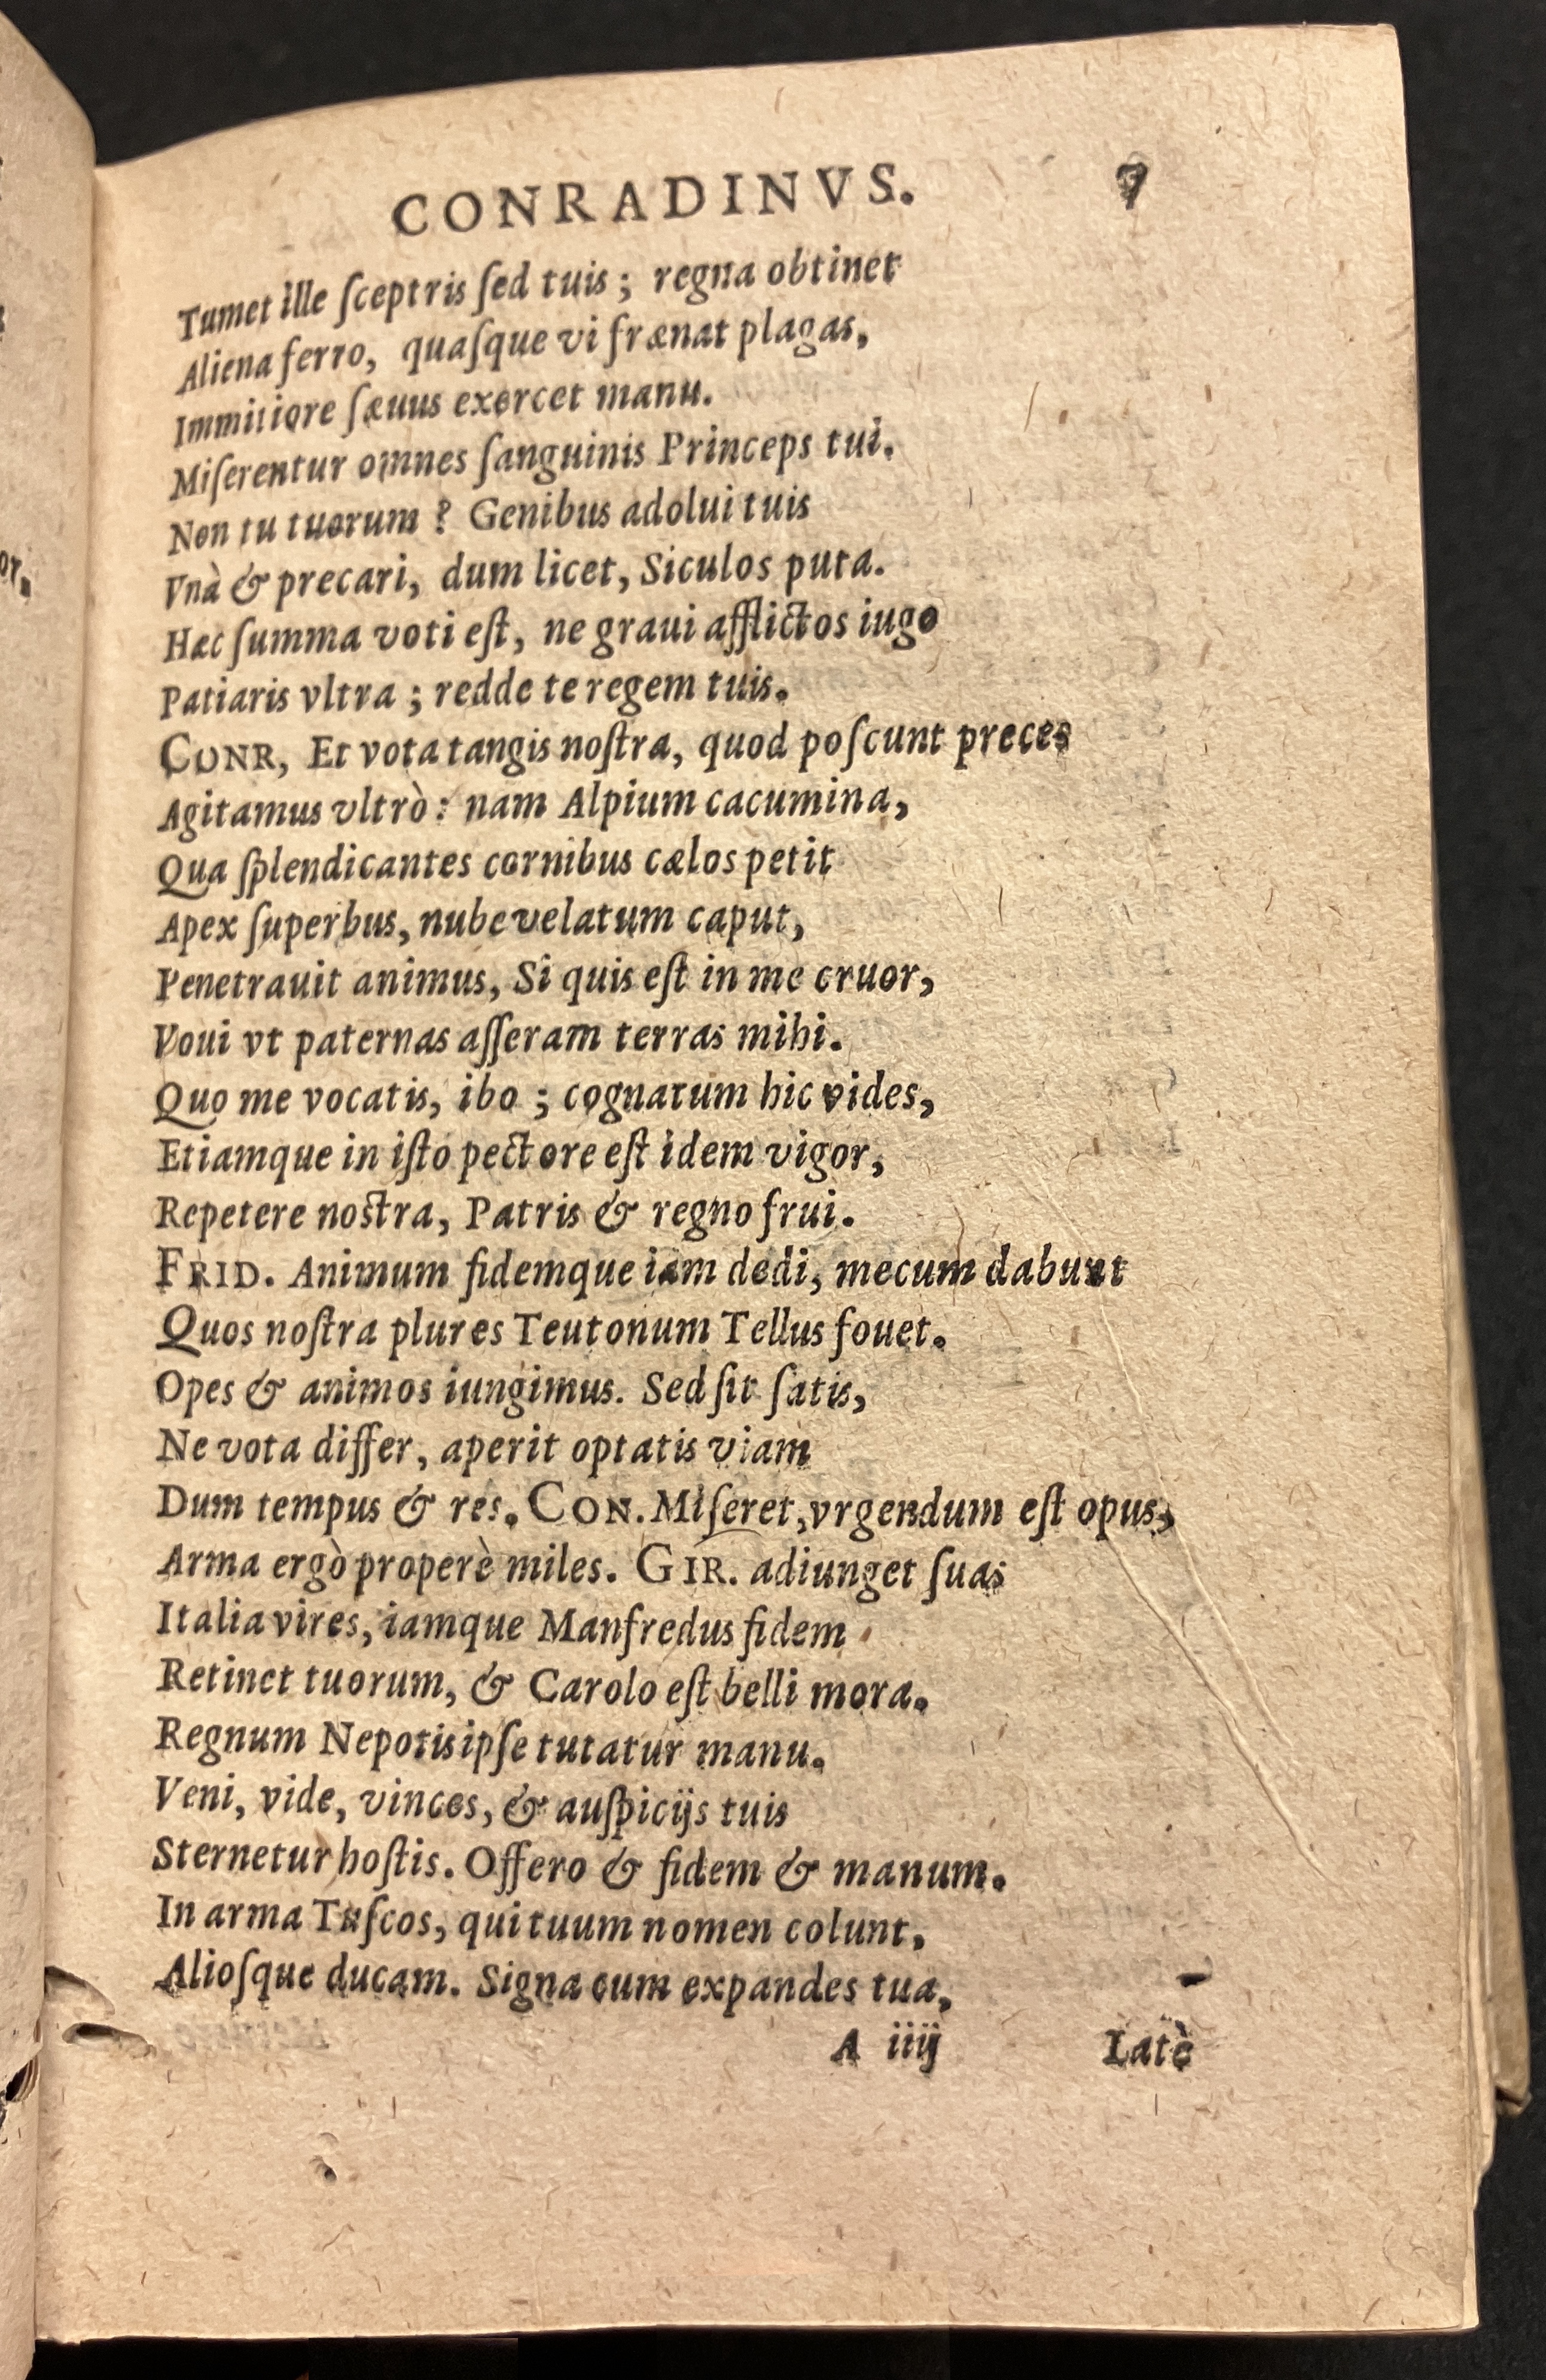 CONRADINVS. 7
Tumet ille ſceptris ſed tuis ; regna obtinet
Aliena ferro, quaſque vi frænat plagas,
Immitiore ſæuus exercet manu.
Miſerentur omnes ſanguinis Princeps tui.
Non tu tuorum ? Genibus adolui tuis
Vnà & precari, dum licet, Siculos puta.
Hæc ſumma voti eſt, ne graui afflictos iugo
Patiaris vltra ; redde te regem tuis.
CONR, Et vota tangis noſtra, quod poſcunt preces
Agitamus vltrò : nam Alpium cacumina,
Qua ſplendicantes cornibus cælos petit
Apex ſuperbus, nube velatum caput,
Penetrauit animus, Si quis eſt in me cruor,
Voui vt paternas aſſeram terras mihi.
Quo me vocatis, ibo ; cognatum hic vides,
Etiamque in iſto pectore eſt idem vigor,
Repetere noſtra, Patris & regno frui.
FRID. Animum fidemque iam dedi, mecum dabunt
Quos noſtra plures Teutonum Tellus fouet.
Opes & animos iungimus. Sed ſit ſatis,
Ne vota differ, aperit optatis viam
Dum tempus & res. CON. Miſeret, vrgendum eſt opus,
Arma ergò properè miles. GIR. adiunget ſuas
Italia vires, iamque Manfredus fidem
Retinet tuorum, & Carolo eſt belli mora.
Regnum Nepotis ipſe tutatur manu.
Veni, vide, vinces, & auſpicijs tuis
Sternetur hoſtis. Offero & fidem & manum.
In arma Tuſcos, qui tuum nomen colunt,
Alioſque ducam. Signa cum expandes tua,
A iiij Latè